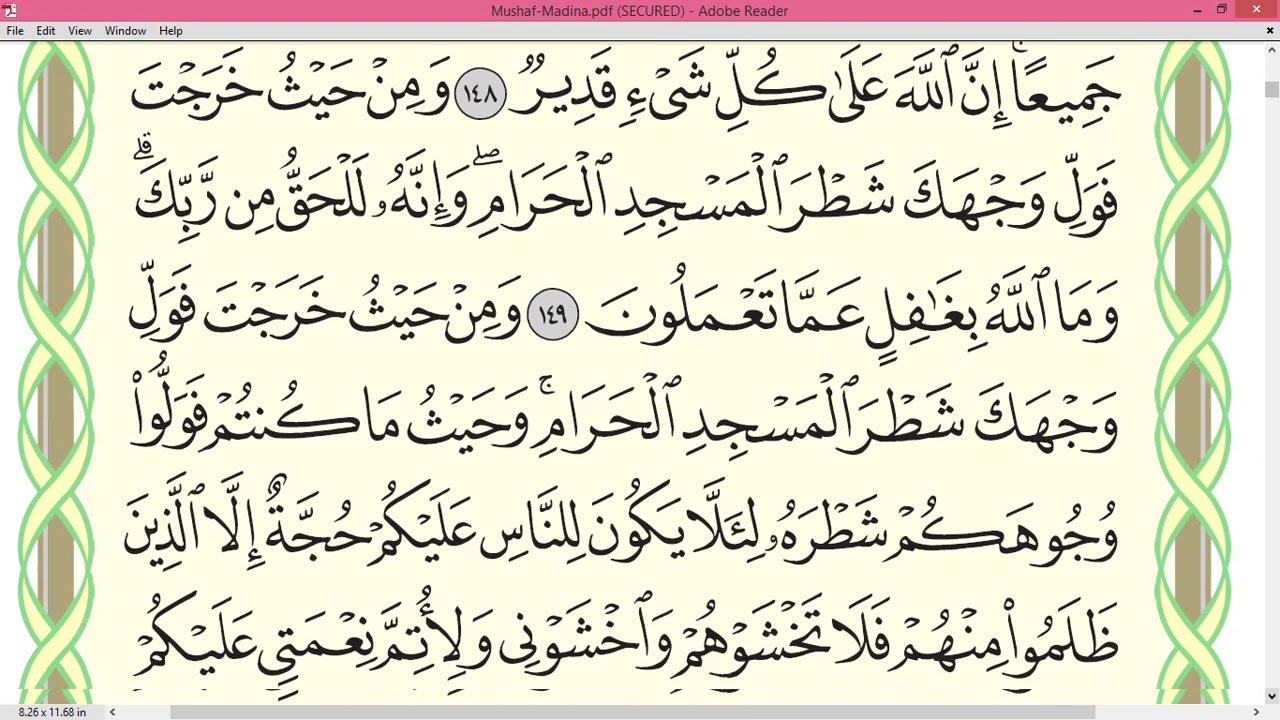 Mushaf-Madina.pdf (SECURED) - Adobe Reader
File Edit View Window Help
جَمِيعًاۚ إِنَّ ٱللَّهَ عَلَىٰ كُلِّ شَىْءٍ قَدِيرٌ ١٤٨ وَمِنْ حَيْثُ خَرَجْتَ
فَوَلِّ وَجْهَكَ شَطْرَ ٱلْمَسْجِدِ ٱلْحَرَامِۖ وَإِنَّهُۥ لَلْحَقُّ مِن رَّبِّكَۗ
وَمَا ٱللَّهُ بِغَٰفِلٍ عَمَّا تَعْمَلُونَ ١٤٩ وَمِنْ حَيْثُ خَرَجْتَ فَوَلِّ
وَجْهَكَ شَطْرَ ٱلْمَسْجِدِ ٱلْحَرَامِۚ وَحَيْثُ مَا كُنتُمْ فَوَلُّوا۟
وُجُوهَكُمْ شَطْرَهُۥ لِئَلَّا يَكُونَ لِلنَّاسِ عَلَيْكُمْ حُجَّةٌ إِلَّا ٱلَّذِينَ
ظَلَمُوا۟ مِنْهُمْ فَلَا تَخْشَوْهُمْ وَٱخْشَوْنِى وَلِأُتِمَّ نِعْمَتِى عَلَيْكُمْ
8.26 x 11.68 in